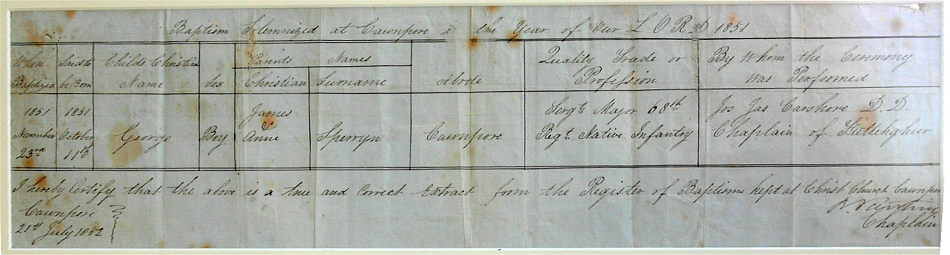 Baptism Solemnized at Cawnpore in the Year of Our LORD 1851
When Baptized
Said to be Born
Childs Christian Name
Sex
Parents Names
Christian
Surname
Abode
Quality Trade or Profession
By Whom the Ceremony Was Performed
1851 November 23rd
1851 October 11th
George
Boy
James & Anne
Sperryn
Cawnpore
Sergt Major 68th Regt Native Infantry
Jos Jas Carshore D. D. Chaplain of Futtehghur
I hereby Certify that the above is a true and Correct Extract from the Register of Baptisms kept at Christ Church Cawnpore
Cawnpore
21st July 1852
Chaplain